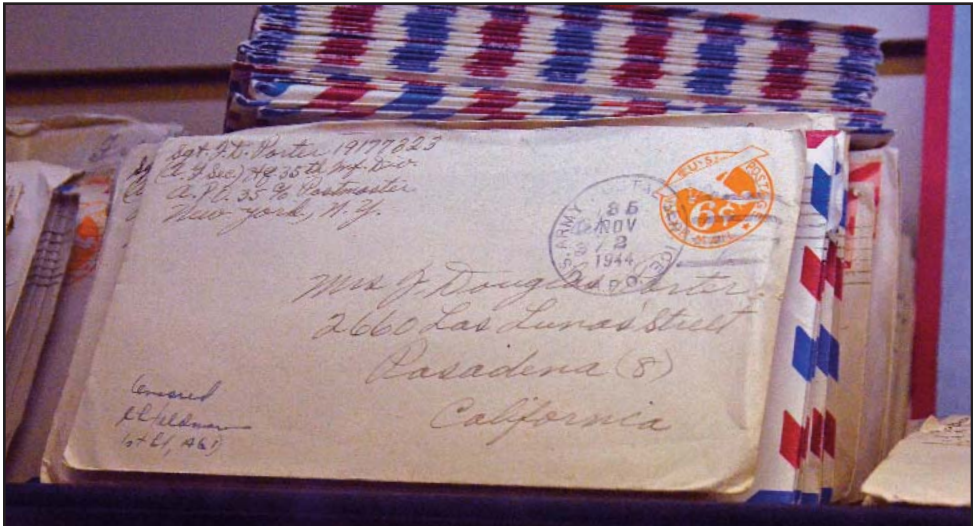 Sgt. J.D. Porter 19177223
(A.G. Sec) Hq 35th Inf. Div.
A.P.O. 35 % Postmaster
New York, N.Y.
U.S. POSTAGE
6¢
U.S. ARMY POSTAL SERVICE
A.P.O.
35
NOV
2
1944
Mrs J. Douglas Porter
2660 Las Lunas Street
Pasadena (8)
California
Censored
1st Lt, AGD